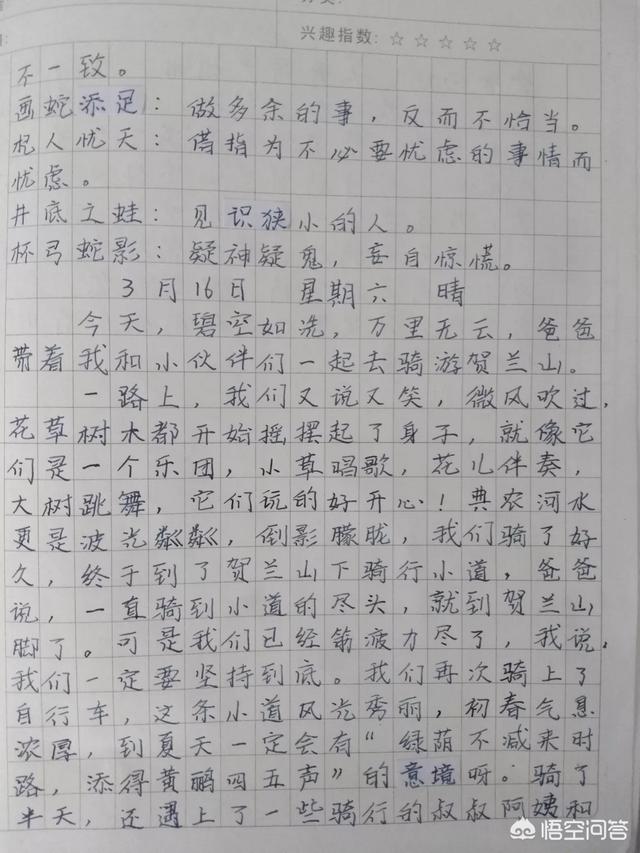 兴趣指数：☆☆☆☆☆
不一致。
画蛇添足：做多余的事，反而不恰当。
杞人忧天：借指为不必要忧虑的事情而
忧虑。
井底之蛙：见识狭小的人。
杯弓蛇影：疑神疑鬼，妄自惊慌。
3月16日 星期六 晴
今天，碧空如洗，万里无云，爸爸
带着我和小伙伴们一起去骑游贺兰山。
一路上，我们又说又笑，微风吹过，
花草树木都开始摇摆起了身子，就像它
们是一个乐团，小草唱歌，花儿伴奏，
大树跳舞，它们玩的好开心！典农河水
更是波光粼粼，倒影朦胧，我们骑了好
久，终于到了贺兰山下骑行小道，爸爸
说，一直骑到小道的尽头，就到贺兰山
脚了。可是我们已经筋疲力尽了，我说，
我们一定要坚持到底。我们再次骑上了
自行车，这条小道风光秀丽，初春气息
浓厚，到夏天一定会有“绿荫不减来时
路，添得黄鹂四五声”的意境呀。骑了
半天，还遇上了一些骑行的叔叔阿姨和
悟空问答